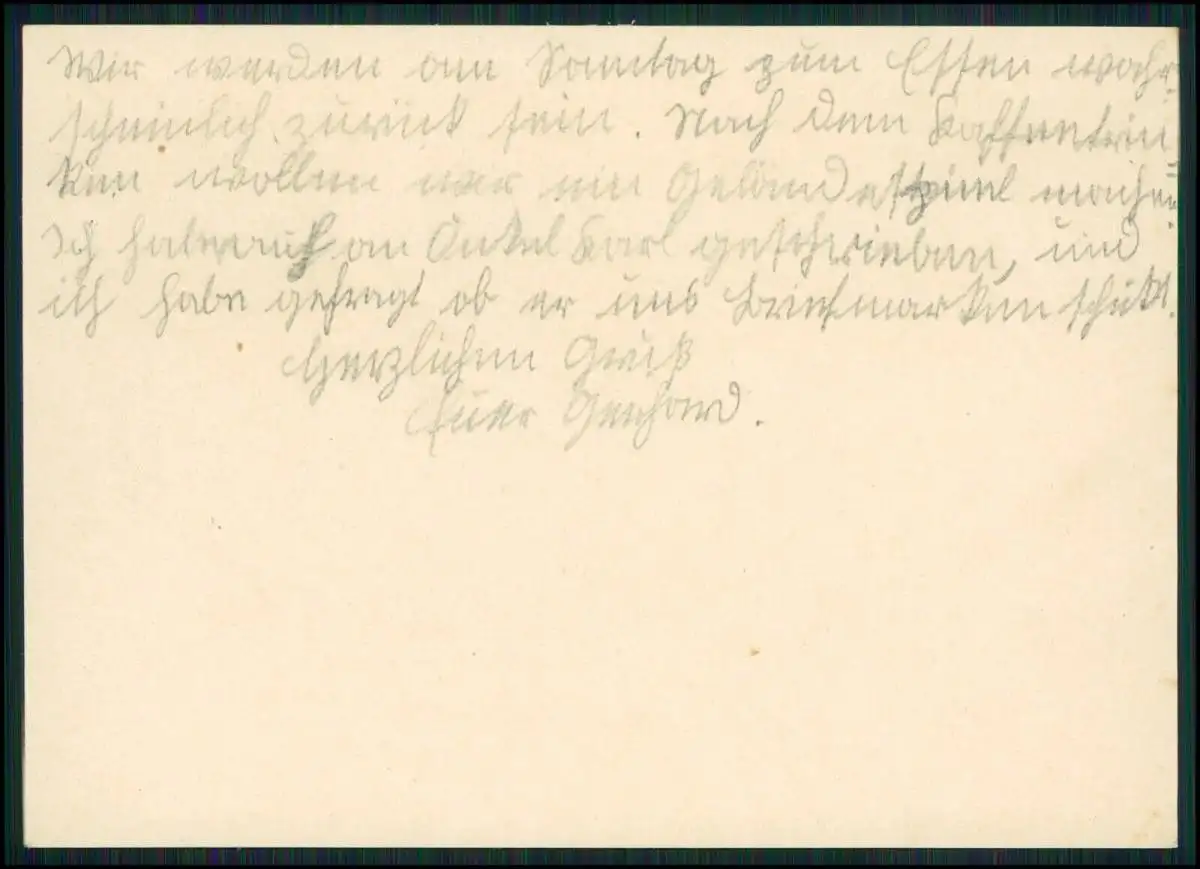 Wir werden am Sonntag zum Essen wahr-
scheinlich zurück sein. Nach dem Kaffeetrin
ken wollen wir ein Geländespiel machen.
Ich habe auch an Onkel Karl geschrieben, und
ich habe gefragt ob er uns Briefmarken schikt.
Herzlichen Gruß
Euer Gerhard.